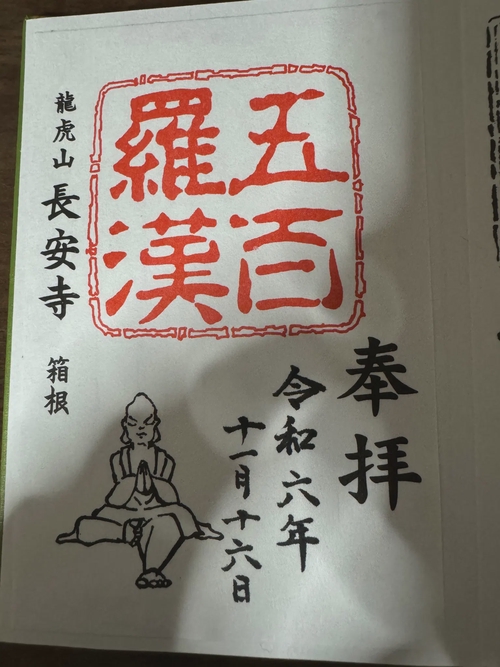 五百
羅漢
奉拝
令和六年
十一月十六日
龍虎山 長安寺 箱根